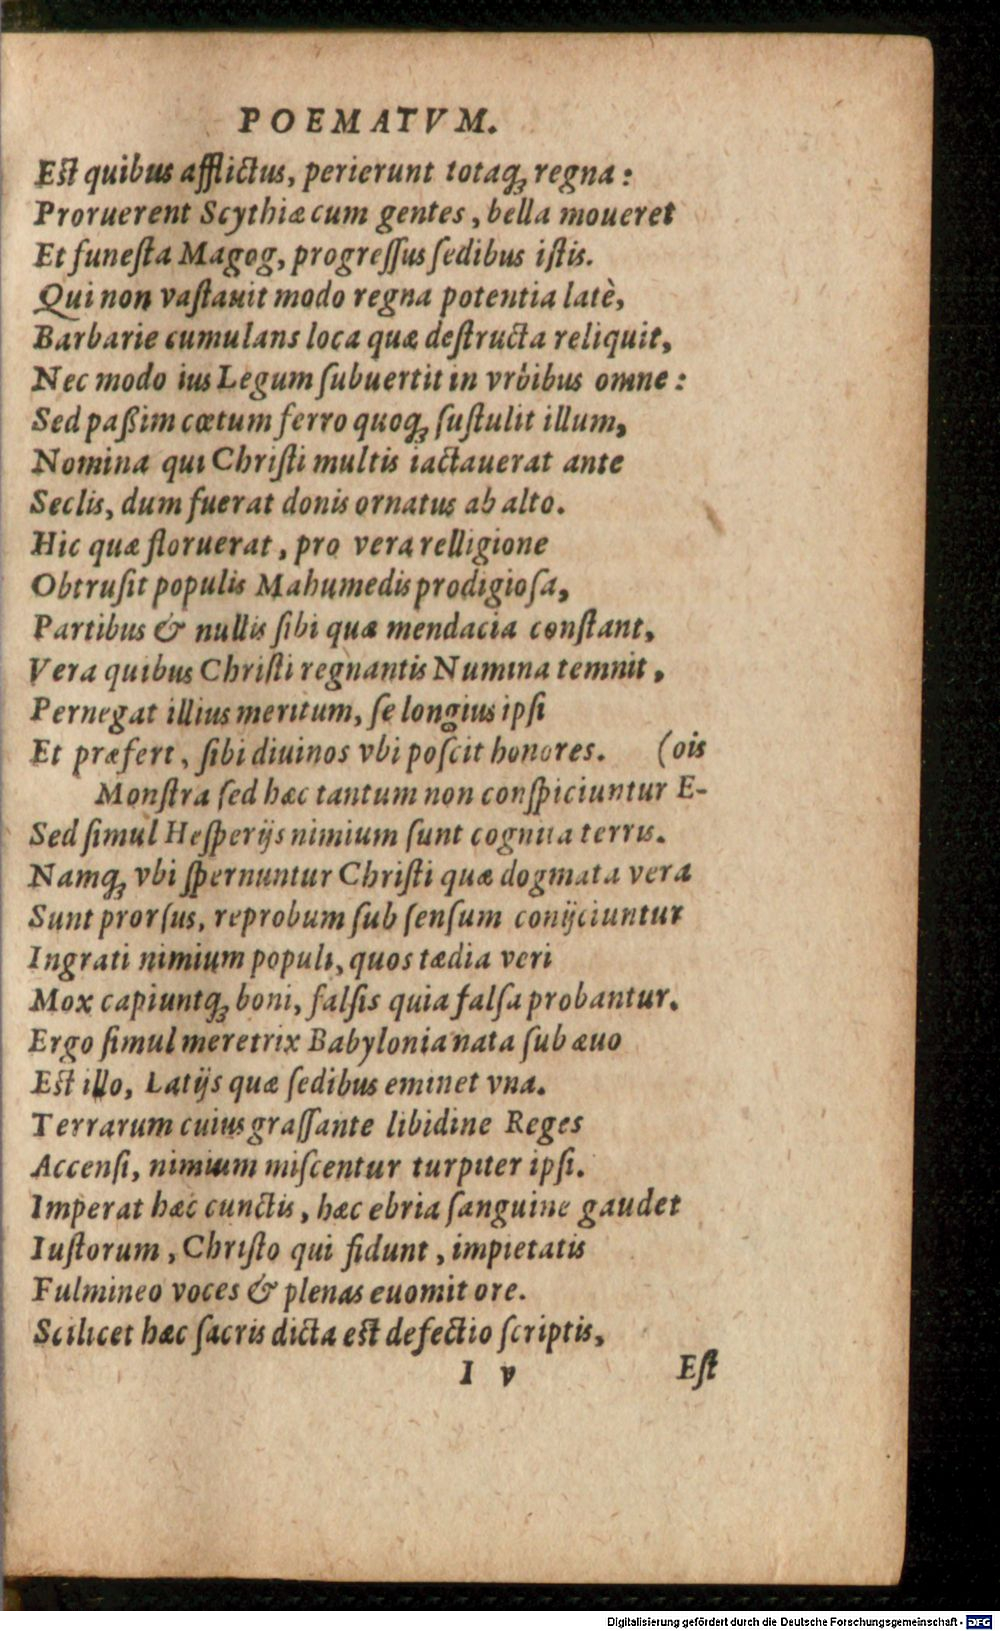 POEMATVM.
Est quibus afflictus, perierunt totaq́; regna:
Proruerent Scythiæ cum gentes, bella moueret
Et funesta Magog, progressus sedibus istis.
Qui non vastauit modo regna potentia latè,
Barbarie cumulans loca quæ destructa reliquit,
Nec modo ius Legum subuertit in vrbibus omne:
Sed paßim cœtum ferro quoq; sustulit illum,
Nomina qui Christi multis iactauerat ante
Seclis, dum fuerat donis ornatus ab alto.
Hic quæ floruerat, pro vera relligione
Obtrusit populis Mahumedis prodigiosa,
Partibus & nullis sibi quæ mendacia constant,
Vera quibus Christi regnantis Numina temnit,
Pernegat illius meritum, se longius ipsi
Et præfert, sibi diuinos vbi poscit honores. (ois
Monstra sed hæc tantum non conspiciuntur E-
Sed simul Hesperijs nimium sunt cognita terris.
Namq; vbi spernuntur Christi quæ dogmata vera
Sunt prorsus, reprobum sub sensum conijciuntur
Ingrati nimium populi, quos tædia veri
Mox capiuntq; boni, falsis quia falsa probantur.
Ergo simul meretrix Babylonia nata sub æuo
Est illo, Latijs quæ sedibus eminet vna.
Terrarum cuius grassante libidine Reges
Accensi, nimium miscentur turpiter ipsi.
Imperat hæc cunctis, hæc ebria sanguine gaudet
Iustorum, Christo qui fidunt, impietatis
Fulmineo voces & plenas euomit ore.
Scilicet hæc sacris dicta est defectio scriptis,
I v Est
Digitalisierung gefördert durch die Deutsche Forschungsgemeinschaft - DFG